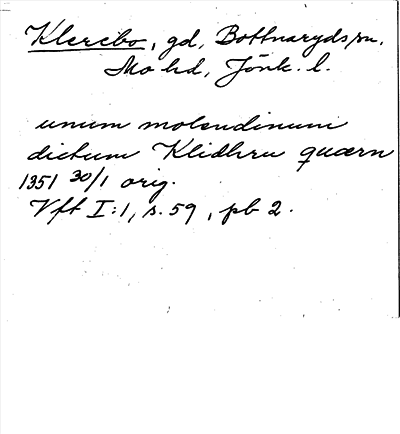 Klerebo, gd, Bottnaryds sn.
Mo hd, Jönk. l.
unum molendinum
dictum Klidhru quærn
1351 30/1 orig.
Vft I:1, s. 59, pb 2.